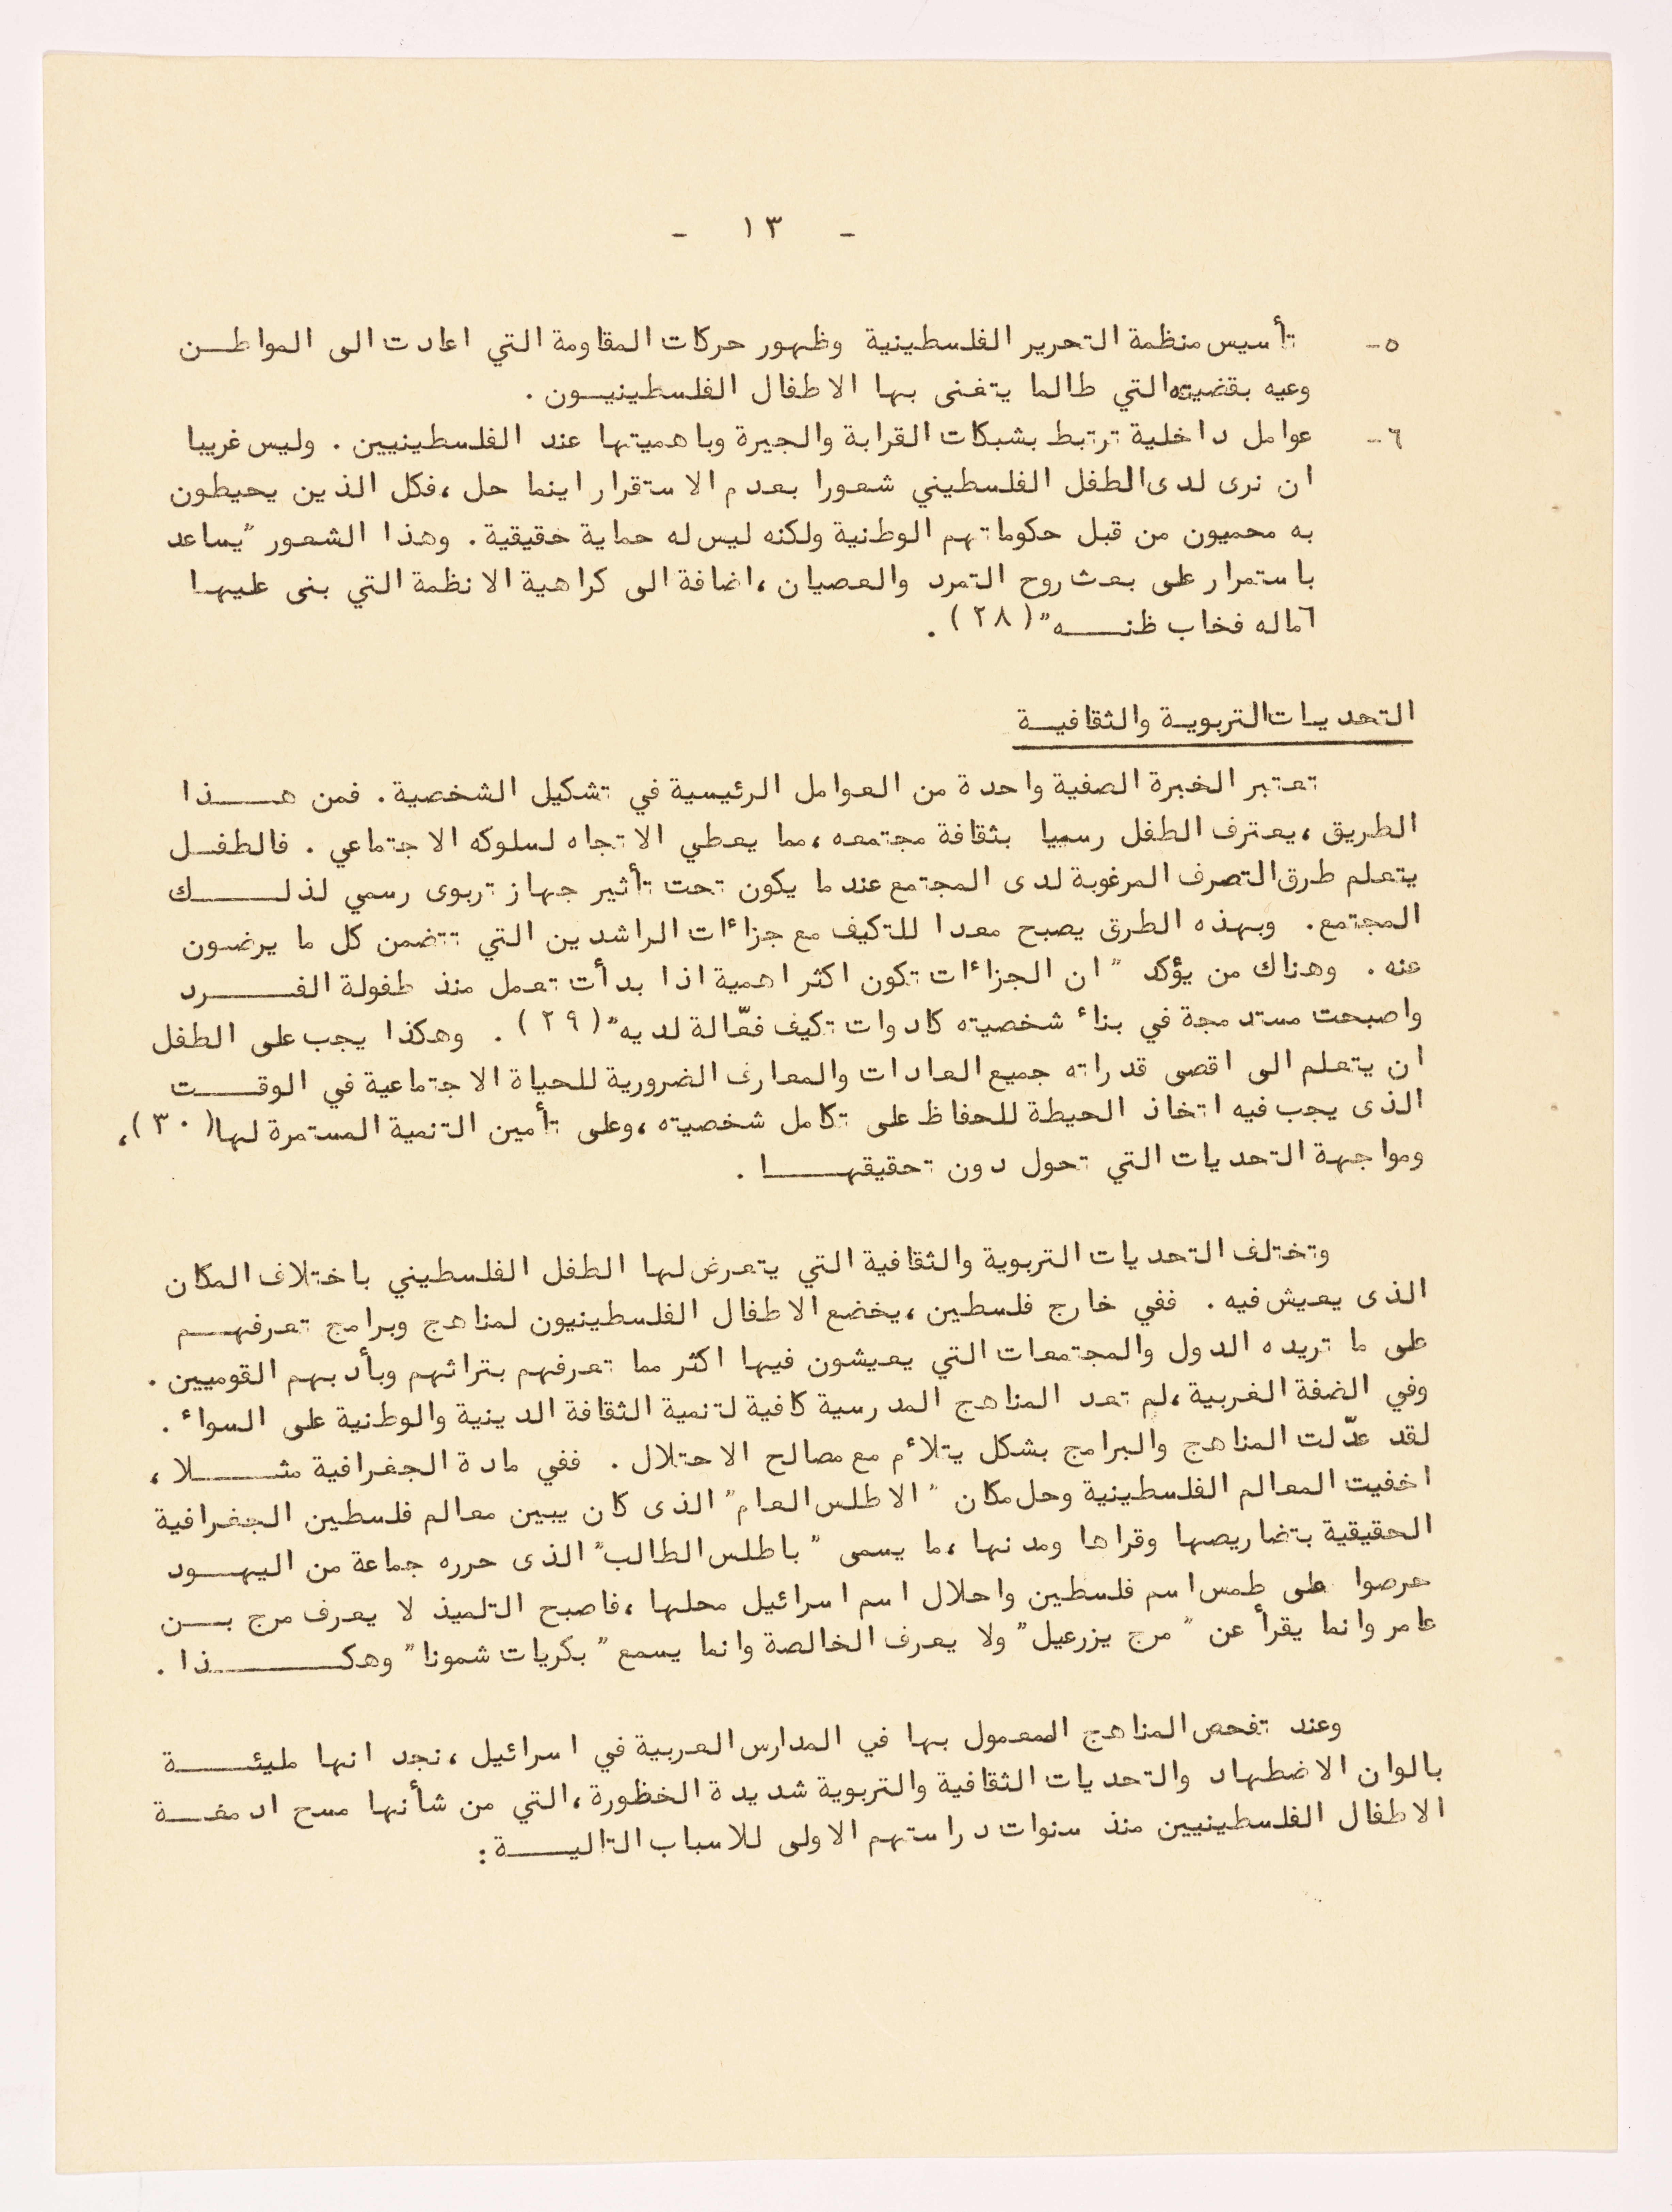 - ١٣ -
٥- تأسيس منظمة التحرير الفلسطينية وظهور حركات المقاومة التي اعادت الى المواطن
وعيه بقضيته التي طالما يتغنى بها الاطفال الفلسطينيون .
٦- عوامل داخلية ترتبط بشبكات القرابة والجيرة وباهميتها عند الفلسطينيين . وليس غريبا
ان نرى لدى الطفل الفلسطيني شعورا بعدم الاستقرار اينما حل ، فكل الذين يحيطون
به محميون من قبل حكوماتهم الوطنية ولكنه ليس له حماية حقيقية . وهذا الشعور "يساعد
باستمرار على بعث روح التمرد والعصيان ، اضافة الى كراهية الانظمة التي بنى عليها
آماله فخاب ظنه" (٢٨) .
التحديات التربوية والثقافية
تعتبر الخبرة الصفية واحدة من العوامل الرئيسية في تشكيل الشخصية . فمن هذا
الطريق ، يعترف الطفل رسميا بثقافة مجتمعه ، مما يعطي الاتجاه لسلوكه الاجتماعي . فالطفل
يتعلم طرق التصرف المرغوبة لدى المجتمع عندما يكون تحت تأثير جهاز تربوى رسمي لذلك
المجتمع . وبهذه الطرق يصبح معدا للتكيف مع جزاءات الراشدين التي تتضمن كل ما يرضون
عنه . وهناك من يؤكد " ان الجزاءات تكون اكثر اهمية اذا بدأت تعمل منذ طفولة الفرد
واصبحت مستدمجة في بناء شخصيته كادوات تكيف فعّالة لديه" (٢٩) . وهكذا يجب على الطفل
ان يتعلم الى اقصى قدراته جميع العادات والمعارف الضرورية للحياة الاجتماعية في الوقت
الذى يجب فيه اتخاذ الحيطة للحفاظ على تكامل شخصيته ، وعلى تأمين التنمية المستمرة لها (٣٠) ،
ومواجهة التحديات التي تحول دون تحقيقها .
وتختلف التحديات التربوية والثقافية التي يتعرض لها الطفل الفلسطيني باختلاف المكان
الذى يعيش فيه . ففي خارج فلسطين ، يخضع الاطفال الفلسطينيون لمناهج وبرامج تعرفهم
على ما تريده الدول والمجتمعات التي يعيشون فيها اكثر مما تعرفهم بتراثهم وبأدبهم القوميين .
وفي الضفة الغربية ، لم تعد المناهج المدرسية كافية لتنمية الثقافة الدينية والوطنية على السواء .
لقد عدّلت المناهج والبرامج بشكل يتلاءم مع مصالح الاحتلال . ففي مادة الجغرافية مثلا ،
اخفيت المعالم الفلسطينية وحل مكان " الاطلس العام" الذى كان يبين معالم فلسطين الجغرافية
الحقيقية بتضاريصها وقراها ومدنها ، ما يسمى " باطلس الطالب" الذى حرره جماعة من اليهود
حرصوا على طمس اسم فلسطين واحلال اسم اسرائيل محلها ، فاصبح التلميذ لا يعرف مرج بن
عامر وانما يقرأ عن " مرج يزرعيل" ولا يعرف الخالصة وانما يسمع " بكريات شمونا" وهكذا .
وعند تفحص المناهج المعمول بها في المدارس العربية في اسرائيل ، نجد انها مليئة
بالوان الاضطهاد والتحديات الثقافية والتربوية شديدة الخظورة ، التي من شأنها مسح ادمغة
الاطفال الفلسطينيين منذ سنوات دراستهم الاولى للاسباب التالية :